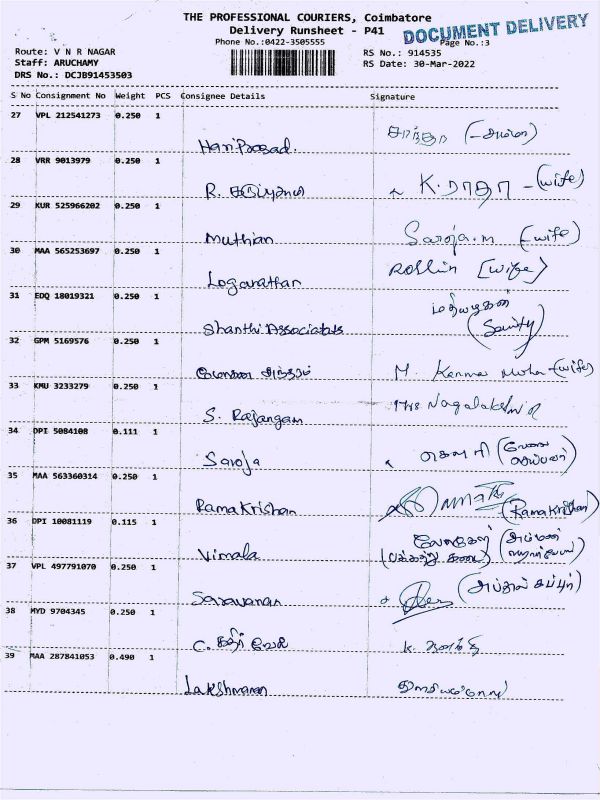 THE PROFESSIONAL COURIERS, Coimbatore
Delivery Runsheet - P41
DOCUMENT DELIVERY
Phone No.:0422-3505555
Page No.:3
Route: V N R NAGAR
RS No.: 914535
Staff: ARUCHAMY
RS Date: 30-Mar-2022
DRS No.: DCJB91453503
S No Consignment No Weight PCS Consignee Details Signature
27 VPL 212541273 0.250 1
Hari Prasad.
28 VRR 9013979 0.250 1
R. K. ராதா - (wife)
29 KUR 525966202 0.250 1
Muthian Saroja.m (wife)
30 MAA 565253697 0.250 1
Loganathan (wife)
31 EDQ 18019321 0.250 1
Shanthi Associates மதியழகன்
32 GPM 5169576 0.250 1
M (wife)
33 KMU 3233279 0.250 1
S. Rajangam
34 DPI 5084108 0.111 1
Saroja
35 MAA 563360314 0.250 1
Rama Krishan (Rama Krishan)
36 DPI 10081119 0.115 1
Vimala (பக்கத்து கடை)
37 VPL 497791070 0.250 1
Saravanan
38 MYD 9704345 0.250 1
C. கதிர் வேல் K.
39 MAA 287841053 0.490 1
Lakshmanan